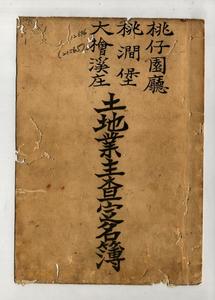 桃仔園廳
桃澗堡
大檜溪庄
土地業主查定名簿